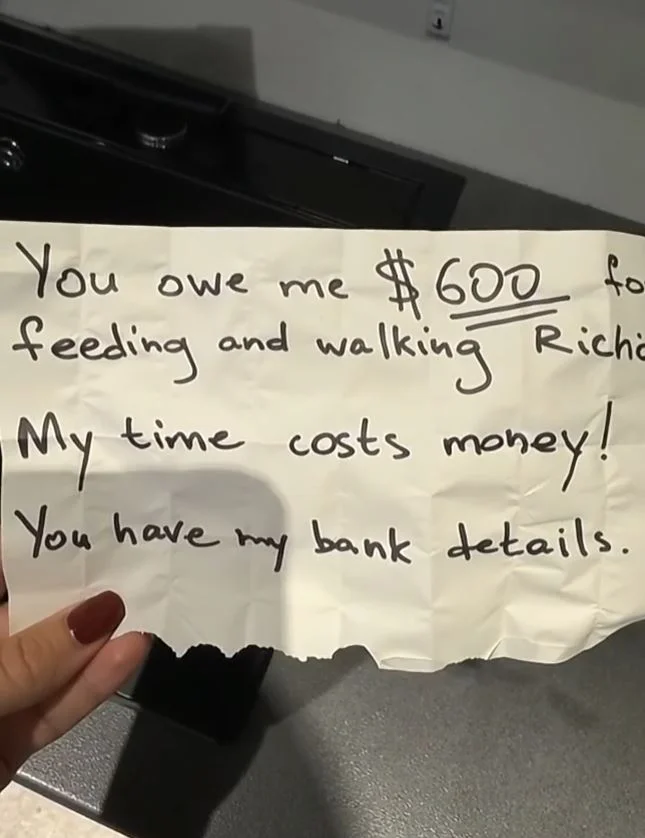 You owe me $600 fo
feeding and walking Richi
My time costs money!
You have my bank details.